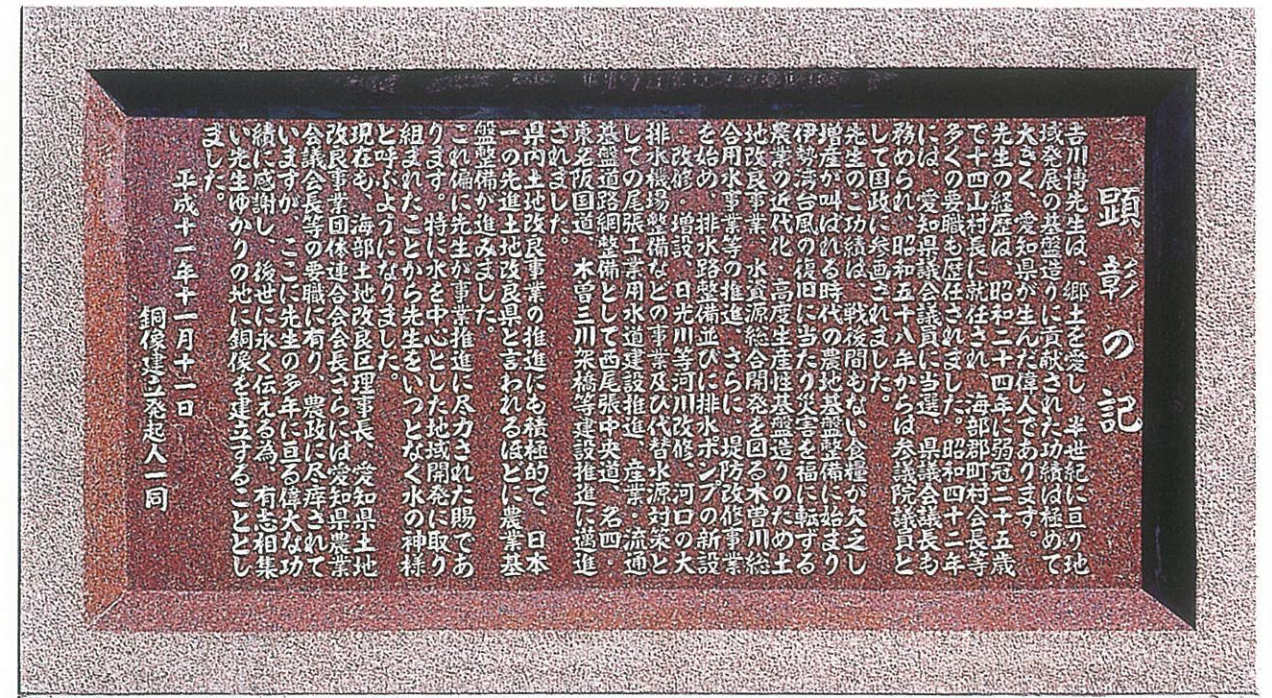 顕彰の記
吉川博先生は、郷土を愛し、半世紀に亘り地
域発展の基盤造りに貢献された功績は極めて
大きく、愛知県が生んだ偉人であります。
先生の経歴は、昭和二十四年に弱冠二十五歳
で十四山村長に就任され、海部郡町村会長等
多くの要職も歴任されました。昭和四十二年
には、愛知県議会議員に当選、県議会議長も
務められ、昭和五十八年からは参議院議員と
して国政に参画されました。
先生のご功績は、戦後間もない食糧が欠乏し
増産が叫ばれる時代の農地基盤整備に始まり
伊勢湾台風の復旧に当たり災害を福に転ずる
農業の近代化・高度生産性基盤造りのため土
地改良事業、水資源総合開発を図る木曽川総
合用水事業等の推進、さらに、堤防改修事業
を始め、排水路整備並びに排水ポンプの新設
・改修・増設、日光川等河川改修、河口の大
排水機場整備などの事業及び代替水源対策と
しての尾張工業用水道建設推進、産業・流通
基盤道路網整備として西尾張中央道、名四・
東名阪国道、木曽三川架橋等建設推進に邁進
されました。
県内土地改良事業の推進にも積極的で、日本
一の先進土地改良県と言われるほどに農業基
盤整備が進みました。
これ偏に先生が事業推進に尽力された賜であ
ります。特に水を中心とした地域開発に取り
組まれたことから先生をいつとなく水の神様
と呼ぶようになりました。
現在も、海部土地改良区理事長、愛知県土地
改良事業団体連合会会長さらには愛知県農業
会議会長等の要職に有り、農政に尽瘁されて
いますが、ここに先生の多年に亘る偉大な功
績に感謝し、後世に永く伝える為、有志相集
い先生ゆかりの地に銅像を建立することとし
ました。
平成十一年十一月十一日
銅像建立発起人一同